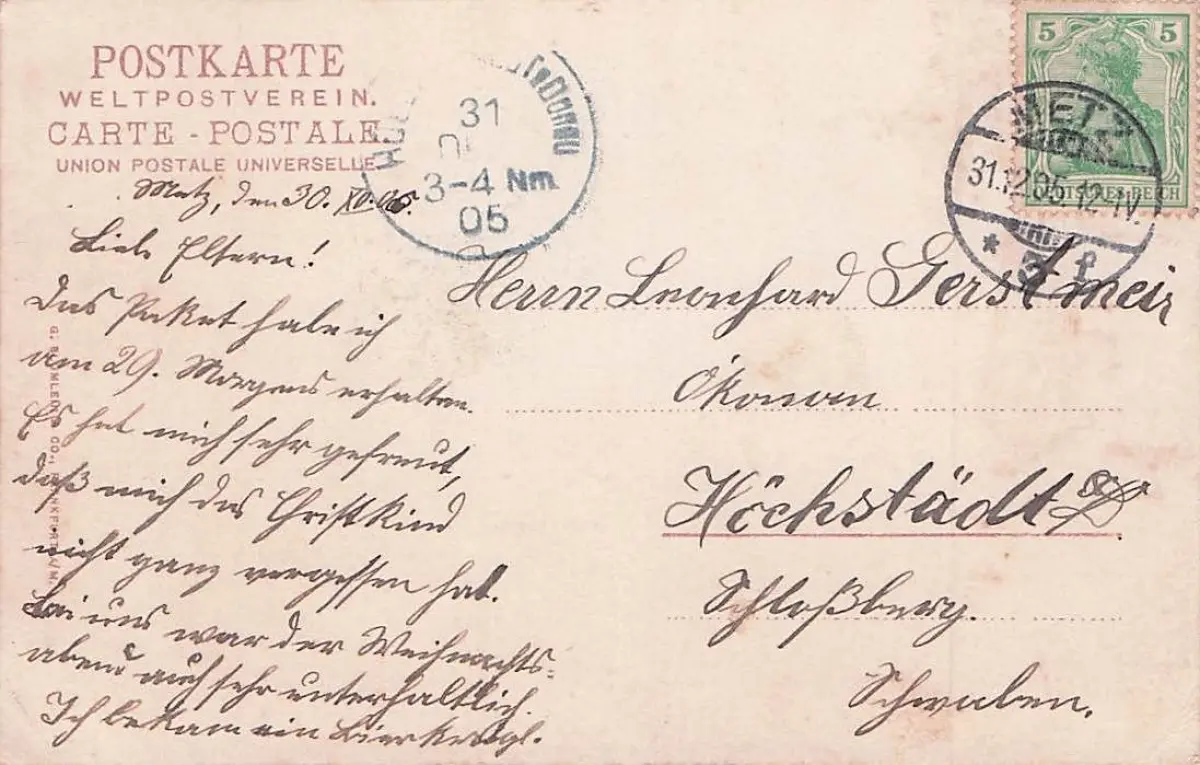 POSTKARTE
WELTPOSTVEREIN.
CARTE - POSTALE.
UNION POSTALE UNIVERSELLE
Metz, den 30. XII. 05.
Liebe Eltern!
Das Paket habe ich
am 29. Morgens erhalten.
Es hat mich sehr gefreut,
daß mich das Christkind
nicht ganz vergessen hat.
Bei uns war der Weihnachts-
abend auch sehr unterhaltlich.
Ich bekam ein
31
3-4 Nm.
05
5 5
DEUTSCHES REICH
METZ
31.12.05.12-1V.
* 2 f
Herrn Leonhard Gerstmeir
Ökonom
Höchstädt a/D
Schloßberg.
Schwaben.
CO., FRANKFURT A/M.